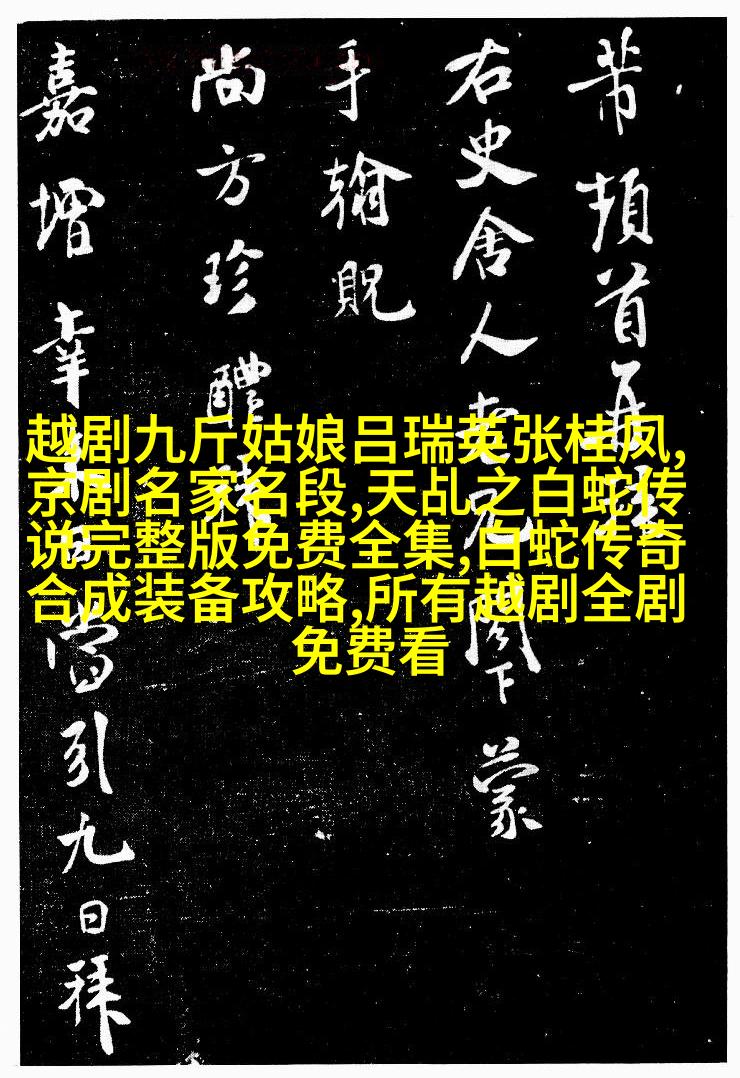 芾頓首再
右史舍人兄閣下蒙
手翰貺
尚方珍醴
嘉增幸當引九日拜
越剧九斤姑娘吕瑞英张桂凤,
京剧名家名段,天乩之白蛇传
说完整版免费全集,白蛇传奇
合成装备攻略,所有越剧全剧
免费看